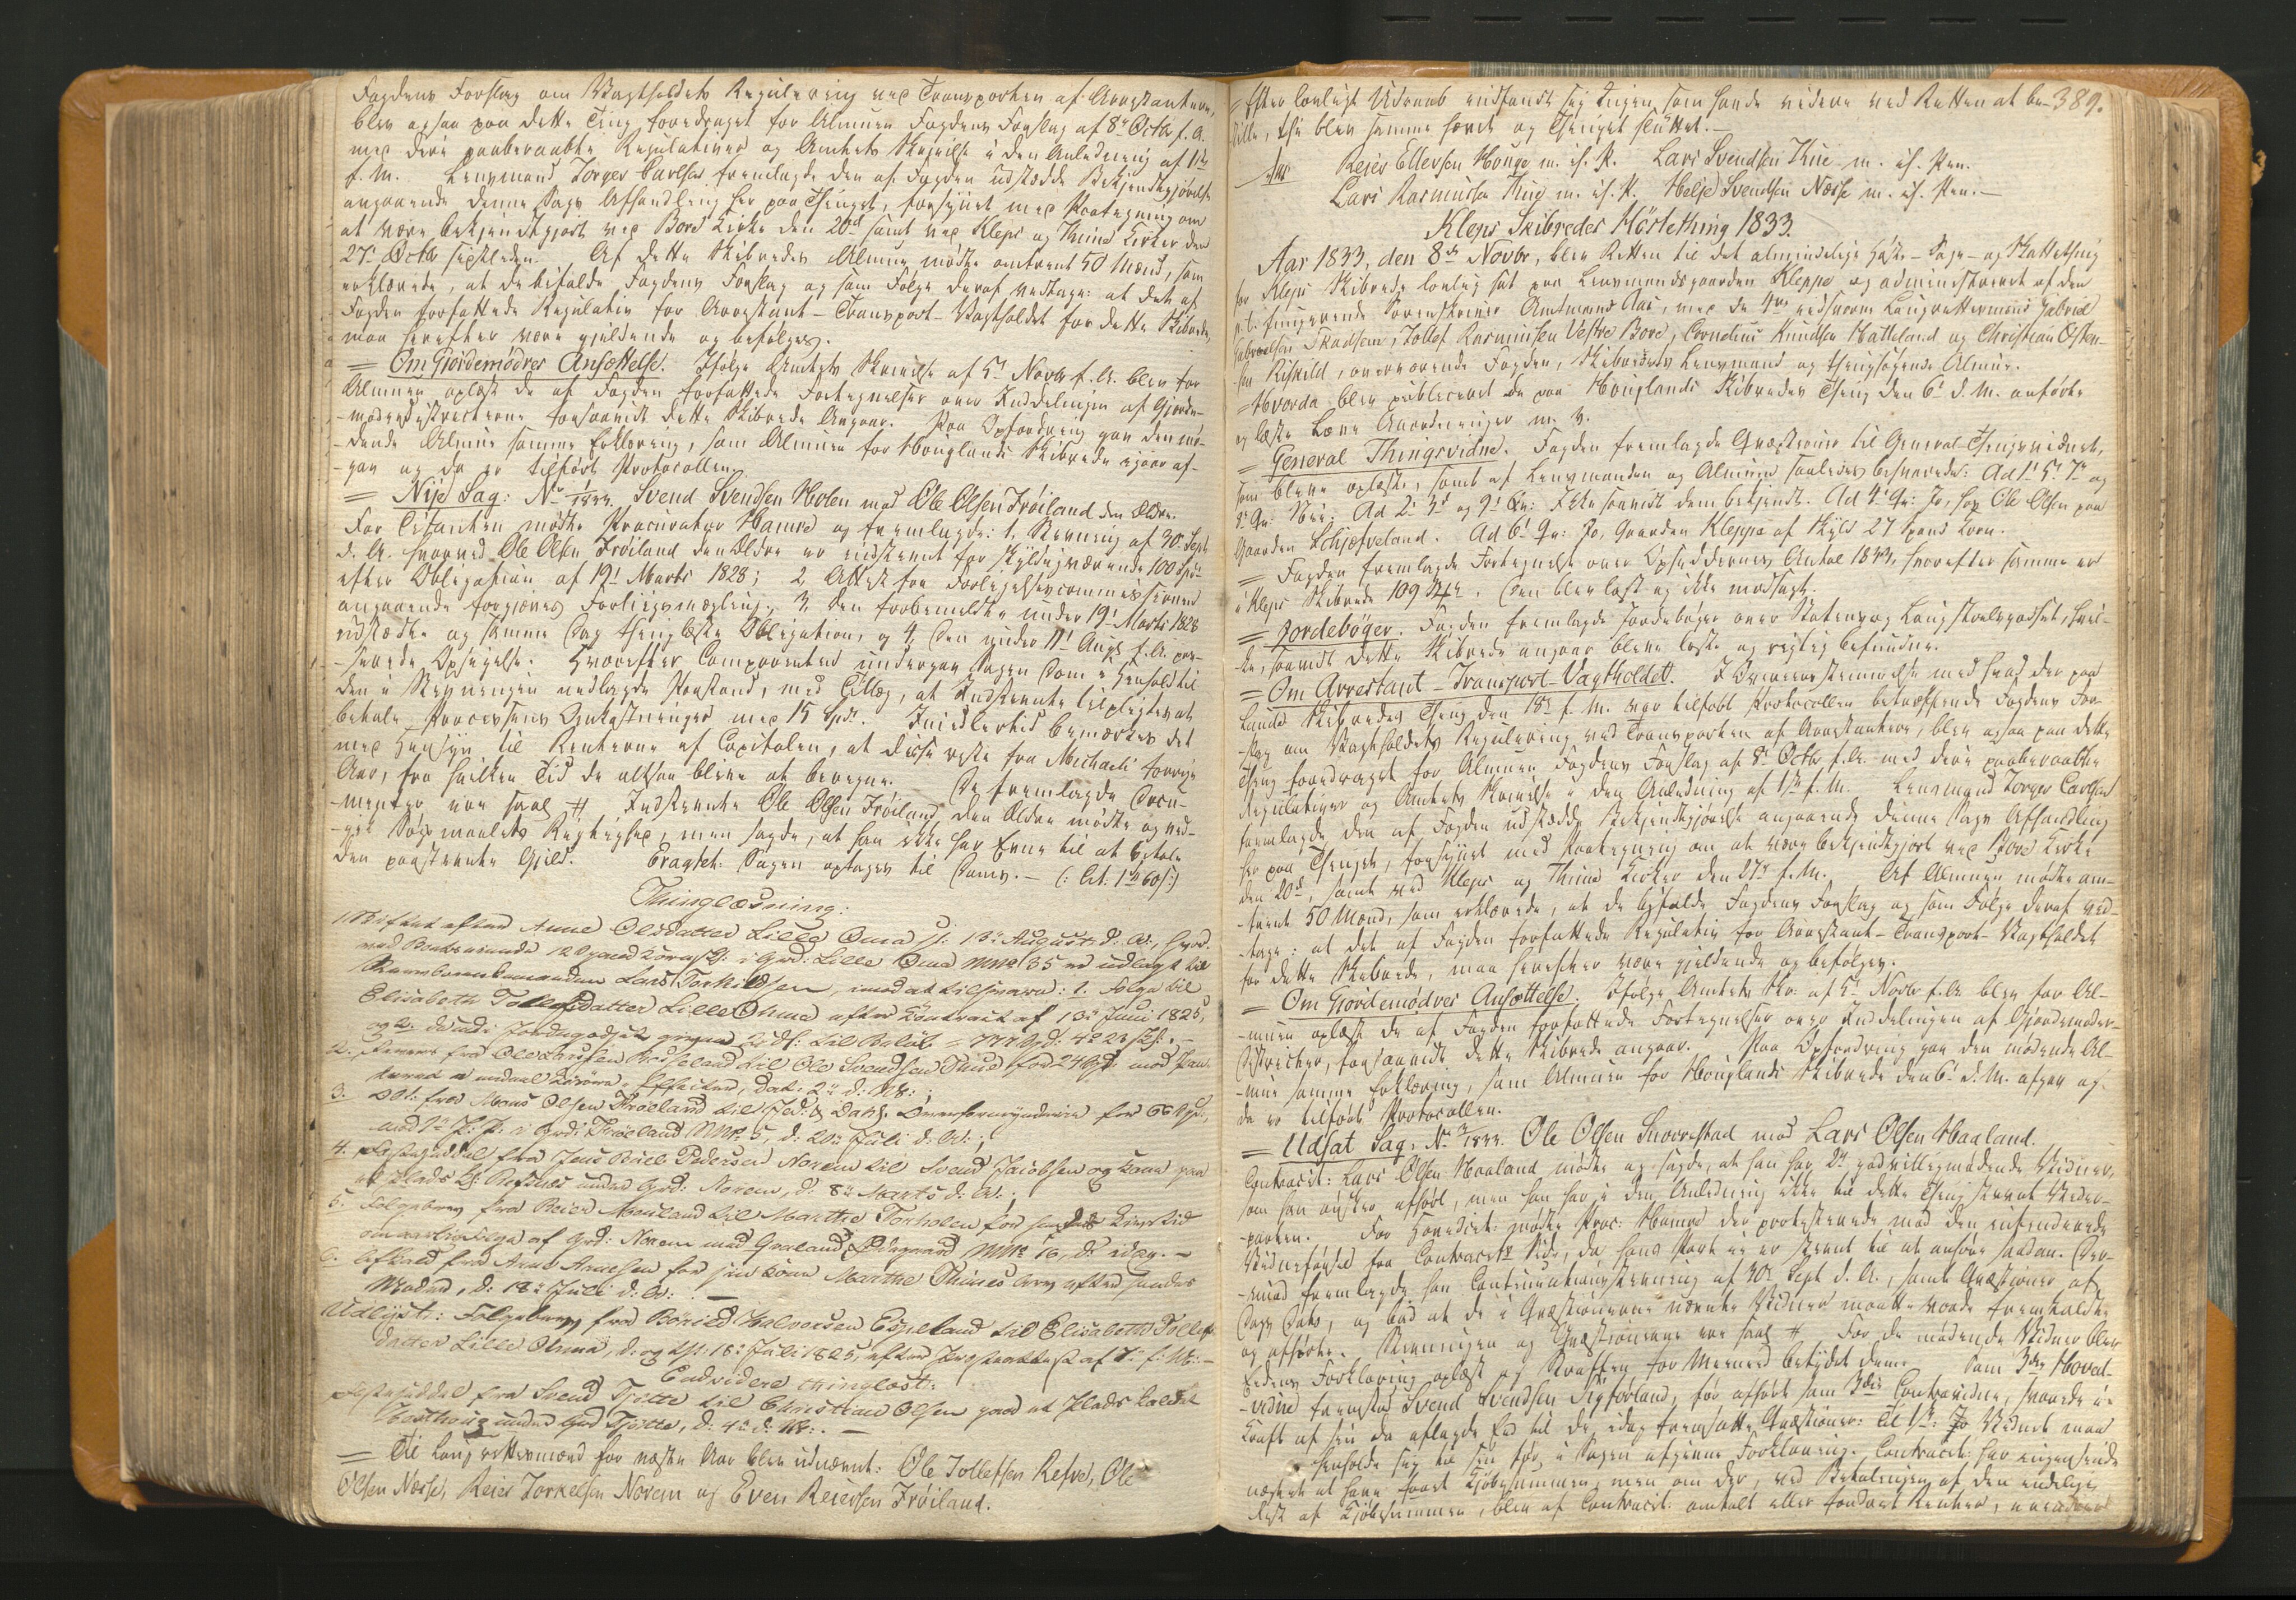 Fogdens Forslag om Vagtholdets Regulering ved Transporten af Arrestantere,
blev ogsaa paa dette Ting foredraget for Almuen Fogdens Forslag af 8de Octbr f. A.
med dens paaberaabte Regulativer og Amtets Skrivelse i den Anledning af 11te
f. M. Lensmand Torger Carlsen fremlagde den af Fogden udstædde Bekjendtgjørelse
angaaende denne Sags Afhandling her paa Thinget, forsynet med Paategning om
at være bekjendtgjort ved Bore Kirke den 20de samt ved Kleps og Thime Kirker den
27de Octbr sidstleden. Af dette Skibredes Almue mødte omtrent 50 Mænd, som
erklærede, at de bifalde Fogdens Forslag og som Følge deraf vedtage: at det af
Fogden forfattede Regulativ for Arrestant-Transport-Vagtholdet for dette Skibrede,
maa herefter være gjeldende og befølges.
= Om Gjordemødres Ansættelse. Ifølge Amtets Skrivelse af 5te Novbr f. A. blev for
Almuen oplæst de af Fogden forfattede Fortegnelser over Inddelingen af Gjorde-
-moderdistricterne forsaavidt dette Skibrede Angaar. Paa Opfordring gav den mø-
-dende Almue samme Erklæring, som Almuen for Houglands Skibrede igaar af-
-gav og da er tilført Protocollen.
= Nije Sag: No 1/1833. Svend Svendsen Holen mod Ole Olsen Frøiland den Ældre.
For Citanten mødte Procurator Hamre og fremlagde: 1, Stevning af 30 Septb
d. A. hvorved Ole Olsen Frøiland den Ældre er indstevnt for skyldigværende 100 Spd
efter Obligation af 19de Marts 1828; 2, Attest fra Forligelsescommissionen
angaaende forgjæves Forligsmægling, 3, den forbemeldte under 19de Marts 1828
udstædte og samme Dag thinglæste Obligation, og 4, den under 11te Augs f. A. pas-
-serede Opsigelse. Hvorefter Comparenten undergav Sagen Dom i Henhold til
den i Stevningen nedlagde Paastand, med Tillæg, at Indstevnte tilpligtes at
betale Processens Omkostninger med 15 Spd. Imidlertid bemærkes det
med Hensyn til Renterne af Capitalen, at disse reste fra Michaeli forrige
Aar, fra hvilken Tid de altsaa blive at beregne. De fremlagde Docu-
-menter ere saal. # Indstevnte Ole Olsen Frøiland den Ældre mødte og ved-
-gik Søgsmaalets Rigtighed, men sagde, at han ikke har Evne til at betale
den paastevnte Gjeld. Eragtet: Sagen optages til Doms.— (: Ct. 1 60/:)
Thinglæsning:
1. Skifte efter Anne Olsdatter Lille Oma sl: 13de Augusti d: A:, hvor-
ved Boets eiende 12 Spand Korn sk: i Grd: Lille Oma MNo 35 er udlagt til
Lars Torkildsen, imod at tilsvare: 1. Følge til
Elisabeth Tollefsdatter Lille Ohma efter Contract af 13de Juni 1825,
2. Pantebrev fra Ole Larsen til Ole Svendsen Thue for 24 Spd mod Pan-
teret i Effecter, dat: 2de d: M:;
3. Dito fra Mons Olsen Frøeland til Jed: & Dal: Overformynderie for 66 Spd,
med 1ste P: P: i Grd: Frøeland MNo 5, d: 20de Juli d: A:;
4. Fæsteseddel fra Jens Bull Pedersen Norem til Svend Jacobsen og Kone paa
et Plads k: Refsnes under Grd: Norem, d: 8de Marts d: A:;
5. Følgebrev fra Reier Norland til Marthe Torholen for hendes Livstid
om aarlig Følge af Grd: Norem med Graland MNo 16, d: idag.—
6. Afkald fra Arne Arnesen for sin Kone Marthe Thimes Arv efter hendes
Moder, d: 18de Juli d: A: —
Udlyst: Følgebrev fra Børild Halvorsen Espeland til Elisabeth Tollefs-
datter Lille Ohma, d: og tgl: 18de Juli 1825, efter
Endvidere thinglæst:
Fæsteseddel fra Svend Tjøtta til Christian Olsen paa et Plads kaldet
Vasthoug under Grd Tjøtta, d: 4de d: M:. —
= Til Laugrettesmænd for næste Aar blev udnævnt: Ole Tollefsen Refve, Ole
Olsen Næsse, Reier Torkelsen Norem og Even Reiersen Frøiland.
389.
= Efter lovligt Udraab indfandt sig Ingen som havde videre ved Retten at be-
stille, thi blev samme hævet og Thinget sluttet.—
Aas Reier Ellevsen Houge m. ih. P. Lars Svendsen Thue m. ih. Pen.
Lars Rasmussen Thue m. ih. P. Helje Svendsen Næsse m. ih. Pen.—
Kleps Skibredes Høstething 1833.
Aar 1833, den 8de Novbr, blev Retten til det almindelige Høste-Sage- og Skattething
for Kleps Skibrede lovlig sat paa Lensmandsgaarden Kleppe og administreret af den
p. t. fungerende Sorenskriver Amtmand Aas, med de 4re edsvorne Laugrettesmænd Gabriel
Gabrielsen Skadsem, Tollef Rasmussen Vestre Bore, Cornelius Knudsen Hatteland og Christian Osten-
sen Riskild, overværende Fogden, Skibredets Lensmand og thingsøgende Almue.
= Hvorda blev publiceret de paa Houglands Skibredes Thing den 6te d. M. anførte
og læste Love Anordninger m. V.
= General Thingsvidne. Fogden fremlagde Qvæstioner til General-Thingsvidnet,
som bleve oplæste, samt af Lensmanden og Almuen saaledes besvarede: Ad 1ste 5te 7de og
8de Qv: Nei; Ad 2de 3de og 9de Qv: Ikke saavidt dem bekjendt. Ad 4de Qv: Jo, hos Ole Olsen paa
Gaarden Schjefveland. Ad 6te Qv: Jo, Gaarden Kleppe af Skyld 27 Spand Korn.
= Fogden fremlagde Fortegnelse over Opsiddernes Antal 1833, hvorefter samme er
i Kleps Skibrede 109 Stk. Den blev læst og ikke modsagt.
= Jordebøger. Fogden fremlagde Jordebøger over Statens og Laugstoelsgodset, hvil-
ke, saavidt dette Skibrede angaar bleve læste og rigtig befundne.
= Om Arrestant-Transport-Vagtholdet. I Overeensstemmelse med hvad der paa
Lunds Skibredes Thing den 18de f. M. var tilført Protocollen betræffende Fogdens For-
-slag om Vagtholdets Regulering ved Transporten af Arrestantere, blev ogsaa paa dette
Thing foredraget for Almuen Fogdens Forslag af 8de Octbr f. A. med dens paaberaabte
Regulativer og Amtets Skrivelse i den Anledning af 11te f. M. Lensmand Torger Carlsen
fremlagde den af Fogden udstædde Bekjendtgjørelse angaaende denne Sags Afhandling
her paa Thinget, forsynet med Paategning om at være bekjendtgjort ved Bore Kirke
den 20de, samt ved Kleps og Thime Kirker den 27de f. M. Af Almuen mødte om-
-trent 50 Mænd, som erklærede, at de bifalde Fogdens Forslag og som Følge deraf ved-
-tage: at det af Fogden forfattede Regulativ for Arrestant-Transport-Vagtholdet
for dette Skibrede, maa herefter være gjeldende og befølges.
= Om Gjordemødres Ansættelse. Ifølge Amtets Skr. af 5te Novbr f. A. blev for Al-
-muen oplæst de af Fogden forfattede Fortegnelser over Inddelingen af Gjordemoder-
Districter, forsaavidt dette Skibrede angaar. Paa Opfordring gav den mødende Al-
-mue samme Erklæring, som Almuen for Houglands Skibrede den 6te d. M. afgav og
da er tilført Protocollen.
= Udsat Sag. No 2/1833. Ole Olsen Snorestad mod Lars Olsen Haaland.
Contracit: Lars Olsen Haaland mødte og sagde, at han har 2de godvilligmødende Vidner,
som han ønsker afhørt, men han har i den Anledning ikke til dette Thing stevnt Veder-
-parten. For Hovedcit: mødte Proc: Hamre der protesterede mod den intenderede
Vidneførsel fra Contracits Side, da hans Part ei er stevnt til at anhøre saadan. Der-
-imod fremlagde han Continuationsstevning af 30te Sept d. A., samt Qvæstioner af
Dags Dato, og bad at de i Qvæstionerne nævnte Vidner maatte vorde fremkaldte
og afhørte. Stevningen og Qvæstionerne ere saal. # For de mødende Vidner blev
Edens Forklaring oplæst og Straffen for Meeneed betydet dem. Som 3die Hoved-
-vidne fremstod Svend Svendsen Sigførland, før afhørt som 3die Contravidne, svarede i
Kraft af sin da aflagde Eed til de idag fremsatte Qvæstioner: Til 1ste: Vidnet maa
henholde sig til sin før i Sagen afgivne Forklaring. Contracit: har ingensinde
nægtet at have faaet Kjøbesummen, men om der, ved Betalingen af den endelige
Rest af Kjøbesummen, blev af Contracit: omtalt eller fordret Renter,